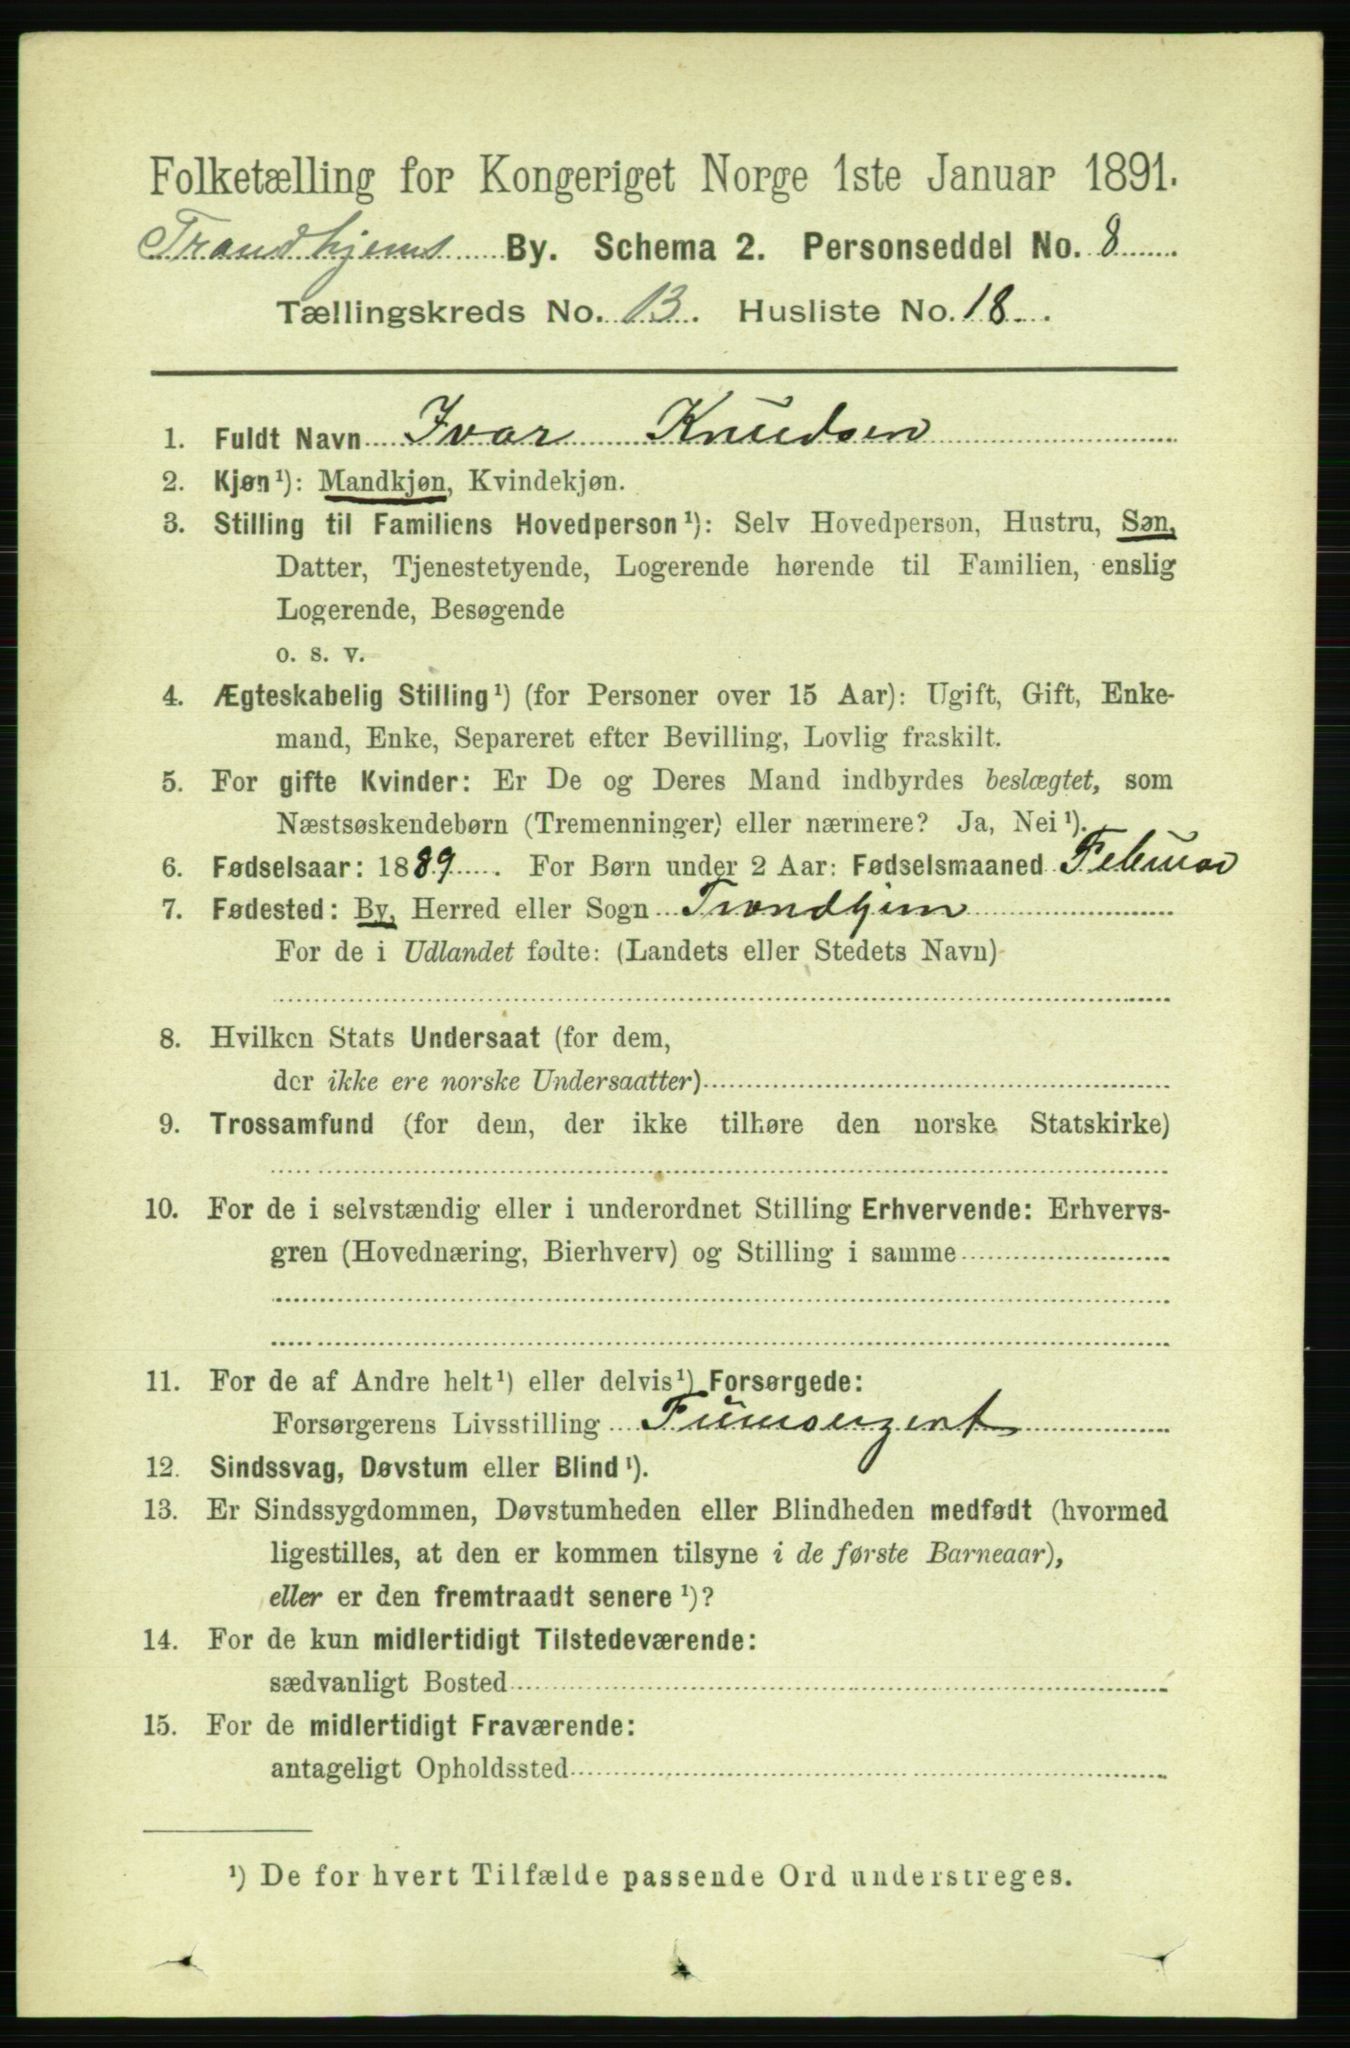 Folketælling for Kongeriget Norge 1ste Januar 1891.
Trondhjems By. Schema 2. Personseddel No. 8
Tællingskreds No. 13. Husliste No. 18.
1. Fuldt Navn Ivar Knudsen
2. Kjøn¹): Mandkjøn, Kvindekjøn.
3. Stilling til Familiens Hovedperson¹): Selv Hovedperson, Hustru, Søn,
Datter, Tjenestetyende, Logerende hørende til Familien, enslig
Logerende, Besøgende
o. s. v.
4. Ægteskabelig Stilling¹) (for Personer over 15 Aar): Ugift, Gift, Enke-
mand, Enke, Separeret efter Bevilling, Lovlig fraskilt.
5. For gifte Kvinder: Er De og Deres Mand indbyrdes beslægtet, som
Næstsøskendebørn (Tremenninger) eller nærmere? Ja, Nei¹).
6. Fødselsaar: 1889. For Børn under 2 Aar: Fødselsmaaned Februar
7. Fødested: By, Herred eller Sogn Trondhjem
For de i Udlandet fødte: (Landets eller Stedets Navn)
8. Hvilken Stats Undersaat (for dem,
der ikke ere norske Undersaatter)
9. Trossamfund (for dem, der ikke tilhøre den norske Statskirke)
10. For de i selvstændig eller i underordnet Stilling Erhvervende: Erhvervs-
gren (Hovednæring, Bierhverv) og Stilling i samme
11. For de af Andre helt¹) eller delvis¹) Forsørgede:
Forsørgerens Livsstilling
12. Sindssvag, Døvstum eller Blind¹).
13. Er Sindssygdommen, Døvstumheden eller Blindheden medfødt (hvormed
ligestilles, at den er kommen tilsyne i de første Barneaar),
eller er den fremtraadt senere¹)?
14. For de kun midlertidigt Tilstedeværende:
sædvanligt Bosted
15. For de midlertidigt Fraværende:
antageligt Opholdssted
¹) De for hvert Tilfælde passende Ord understreges.